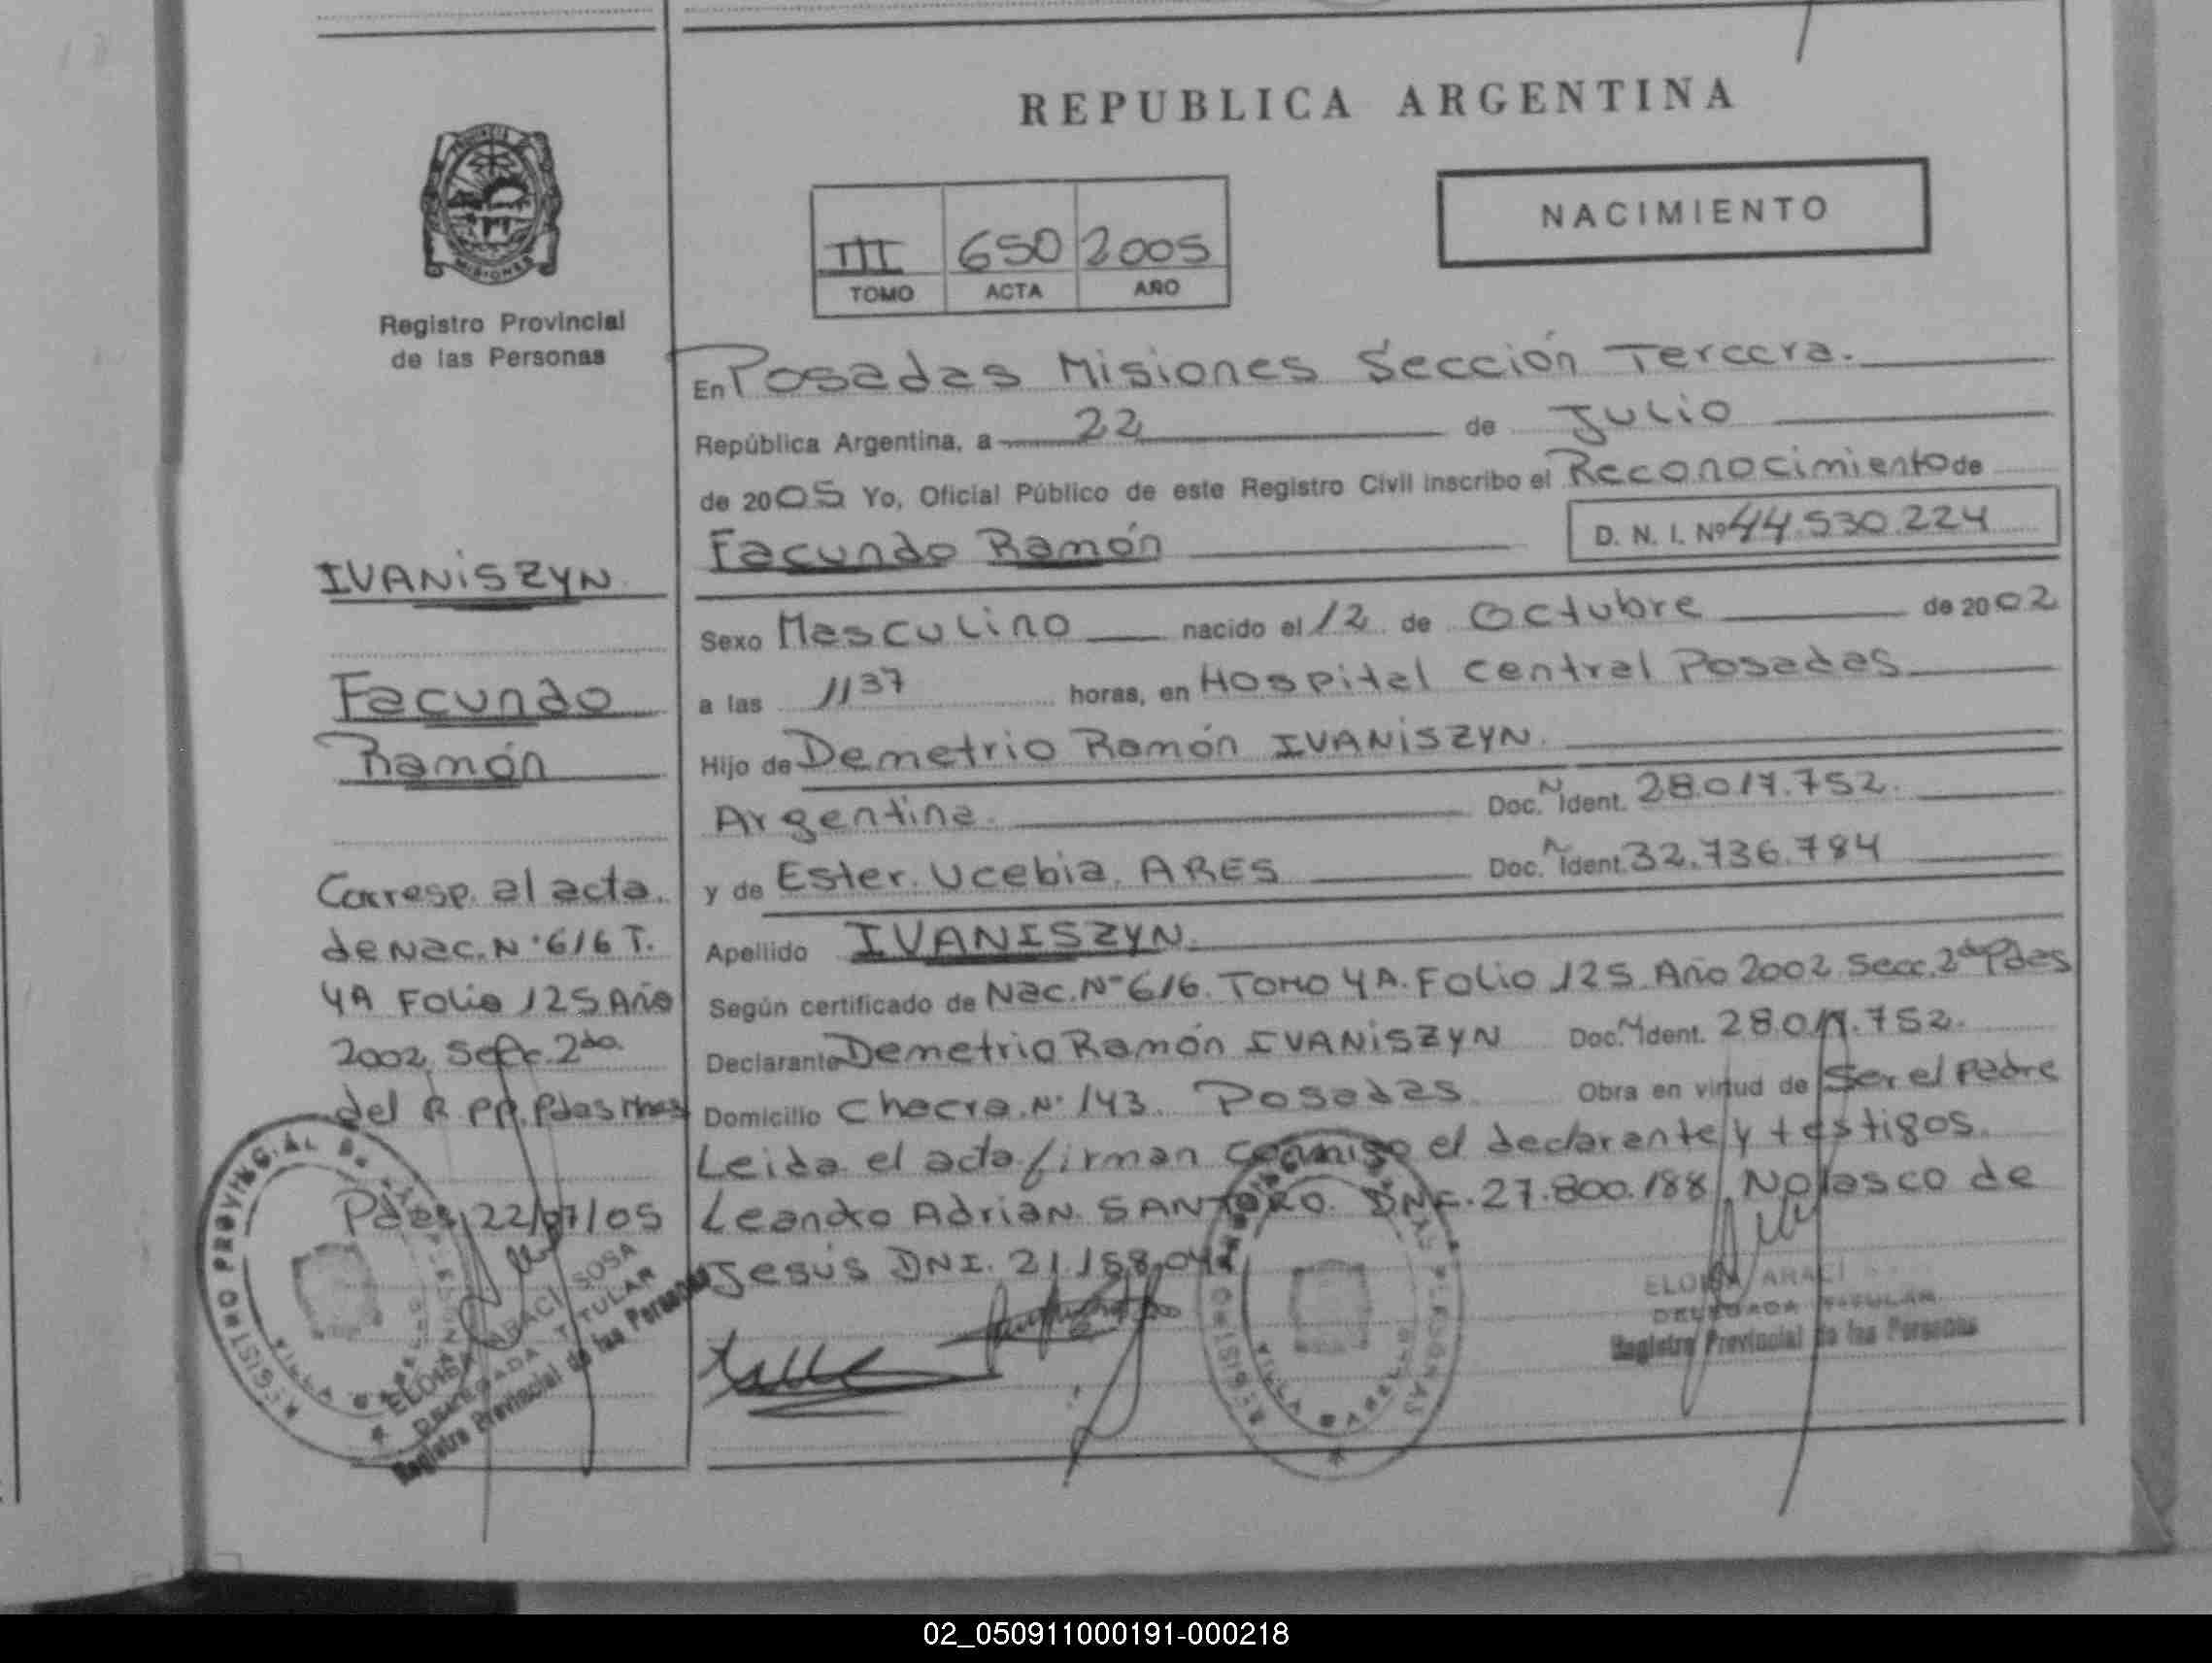 REPUBLICA ARGENTINA
NACIMIENTO
III 650 2005
TOMO ACTA AÑO
PROVINCIA DE MISIONES
Registro Provincial
de las Personas
IVANISZYN
Facundo
Ramón
Corresp. al acta.
de Nac. N° 616 T.
4A Folio 125 Año
2002 Secc. 2da
del R. PP. Pdas Mnes
Pdas, 22/07/05
En Posadas Misiones Sección Tercera.
República Argentina, a 22 de Julio
de 2005 Yo, Oficial Público de este Registro Civil inscribo el Reconocimiento de
Facundo Ramón D. N. I. Nº 44.530.224
Sexo Masculino nacido el 12 de Octubre de 2002
a las 11 37 horas, en Hospital Central Posadas
Hijo de Demetrio Ramón IVANISZYN.
Argentina. Doc. N Ident. 28.017.752.
y de Ester. Ucebia. ARES Doc. N Ident. 32.736.784
Apellido IVANISZYN.
Según certificado de Nac. N° 616. Tomo 4A. Folio 125 Año 2002 Secc. 2da Pdas
Declarante Demetrio Ramón IVANISZYN Doc. N Ident. 28.017.752.
Domicilio Chacra. N° 143. Posadas Obra en virtud de Ser el Padre
Leida el acta firman conmigo el declarante y testigos.
Leandro Adrian SANTORO. DNI. 27.800.188, Nolasco de
Jesús DNI. 21.158.04
REGISTRO PROVINCIAL DE LAS PERSONAS
ELOISA ARACI SOSA
DELEGADA TITULAR
Registro Provincial de las Personas
ELOISA ARACI
DELEGADA TITULAR
Registro Provincial de las Personas
02_050911000191-000218